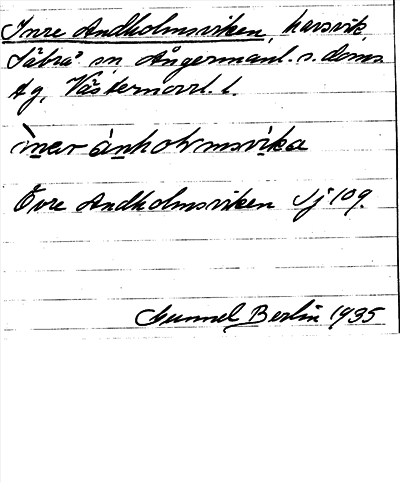 Inre Andholmsviken, havsvik,
Säbrå sn Ångermanl. s. doms.
tg, Västernorrl. l.
ìnər ánhoļmsvika
Övre Andholmsviken Sj 109.
Gunnel Berlin 1935